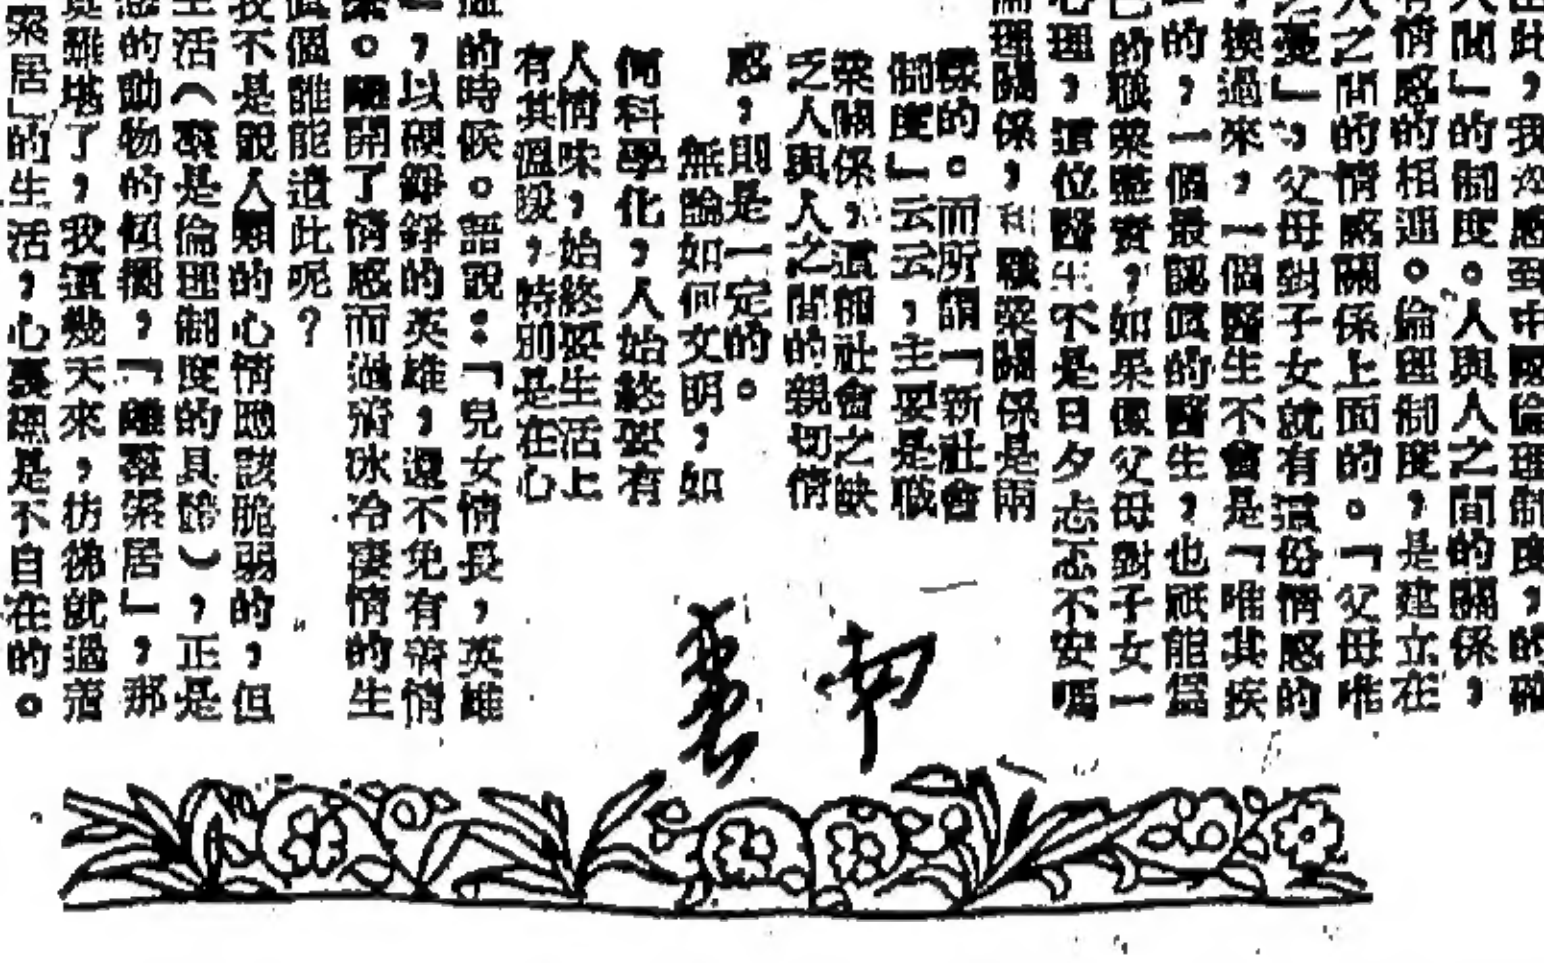 由此，我深感到中國倫理制度，的確
人間」的制度。人與人之間的關係，
有情感的相連。倫理制度，是建立在
人之間的情感關係上面的。「父母唯
之憂」，父母對子女就有這份情感的
換過來，一個醫生不會是「唯其疾
的，一個最認真的醫生，也祇能為
己的職業盡責，如果像父母對子女一
心理，這位醫生不是日夕忐忑不安嗎
倫理關係，和職業關係是兩
樣的。而所謂「新社會
制度」云云，主要是職
業關係，這個社會之缺
乏人與人之間的親切情
感，則是一定的。
無論如何文明，如
何科學化，人始終要有
人情味，始終要生活上
有其溫暖，特別是在心
的時候。語說：「兒女情長，英雄
，以硬錚錚的英雄，還不免有著情
。離開了情感而過著冰冷凄情的生
個誰能遣此呢？
我不是說人類的心情應該脆弱的，但
生活（這是倫理制度的具體），正是
的動物的傾向，「離羣索居」，那
真難堪了，我這幾天來，彷彿就過着
索居」的生活，心裏總是不自在的。